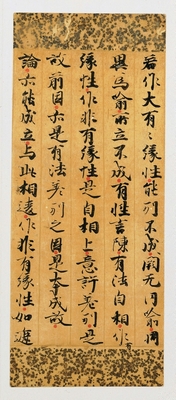 若作大有〻緣性能別不成闕无同喻同
異爲喻所立不成有性言陳有法自相作
緣性作非有緣性是自相上意許差別是
故前因亦是有法差別之因是本成故
論亦能成立与此相違作非有緣性如遮